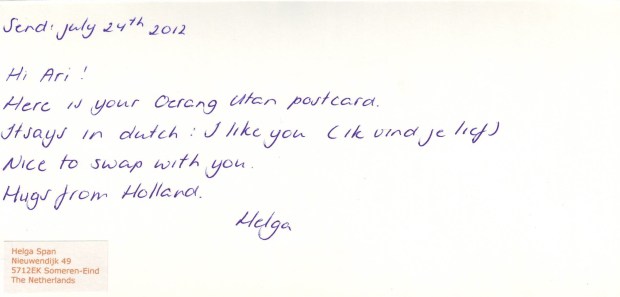 Send: july 24th 2012
Hi Ari!
Here is your Oerang Utan postcard.
It says in dutch: I like you (ik vind je lief)
Nice to swap with you.
Hugs from Holland.
Helga
Helga Span
Nieuwendijk 49
5712EK Someren-Eind
The Netherlands